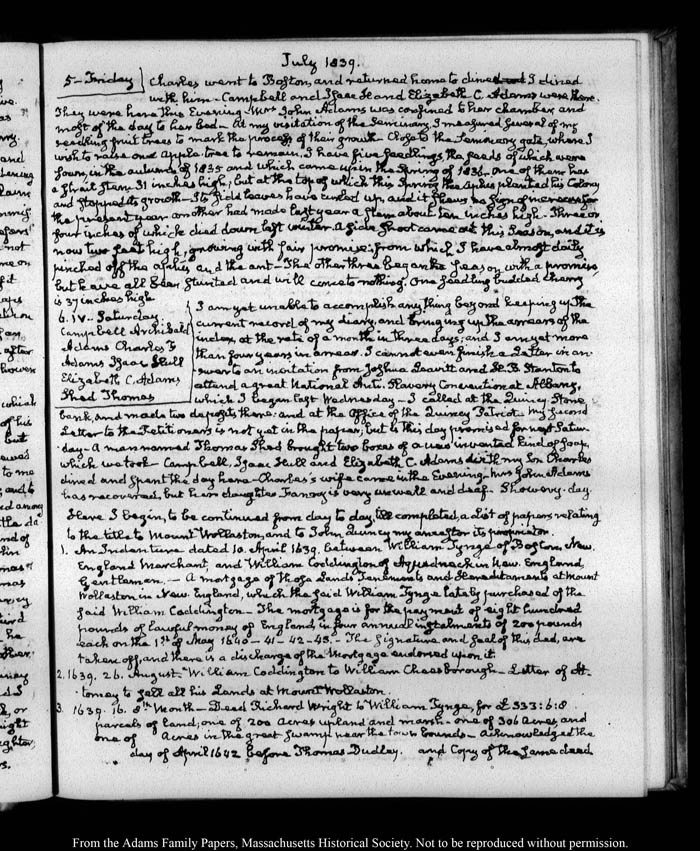 July 1839.
5. Friday Charles went to Boston, and returned home to dine and I dined
with him. Campbell and Isaac H and Elizabeth C. Adams were there.
They were here this Evening. Mrs John Adams was confined to her chamber and
most of the day to her bed. At my visitation of the Seminary, I measured several of my
seedling fruit trees to mark the process of their growth. Close to the Seminary gate, where I
wish to raise one apple-tree to remain, I have five seedlings, the seeds of which were
sown, in the autumn of 1835 and which came up in the Spring of 1836. One of them has
a fruit stem 31 inches high, but at the top of which this Spring the aphis planted his Colony
and stopped its growth. Its side leaves have curled up, and it shews no sign of
the present year another had made last year a stem about ten inches high. Three or
four inches of which died down last winter. A side shoot came out this Season, and it is
now two feet high, growing with fair promise; from which I have almost daily
pinched off the aphis and the ant. The other three began the Season with a promise
but have all been stunted and will come to nothing. One seedling budded cherry
is 37 inches high
6. IV. Saturday. I am yet unable to accomplish any thing beyond keeping up the
Campbell Archibald current record of my diary, and bringing up the arrears of the
Adams Charles F index, at the rate of a month in three days; and I am yet more
Adams Isaac Hull than four years in arrear. I cannot even finish a Letter in an-
Elizabeth C. Adams swer to an invitation from Joshua Leavitt and H. B. Stanton to
Shed Thomas attend a great National Anti-Slavery Convention at Albany,
which I began last Wednesday. I called at the Quincy Stone
bank, and made two deposits there: and at the Office of the Quincy Patriot. My second
Letter to the Petitioners is not yet in the paper; but is this day promised for next Satur-
day. A man named Thomas Shed brought two boxes of a new invented kind of soap,
which we took. Campbell, Isaac Hull and Elizabeth C. Adams with my Son Charles
dined and spent the day here. Charles's wife came in the Evening. Mrs John Adams
has recovered, but her daughter Fanny is very unwell and deaf. Showery day.
Here I begin, to be continued from day to day, till completed, a list of papers relating
to the title to Mount Wollaston, and to John Quincy my ancestor its proprietor.
1. An Indenture dated 10. April 1639. between William Tynge of Boston, New
England Merchant, and William Coddington of Aquedneck in New England,
Gentleman. — A mortgage of those Lands Tenements and Hereditaments at Mount
Wollaston in New England, which the said William Tynge lately purchased of the
said William Coddington. The mortgage is for the payment of eight hundred
pounds of lawful money of England, in four annual instalments of 200 pounds
each on the 1st of May 1640 - 41 - 42 - 43. The signature and seal of this deed, are
taken off, and there is a discharge of the Mortgage endorsed upon it.
2. 1639. 26. August. William Coddington to William Cheesborough. Letter of At-
torney to sell all his Lands at Mount Wollaston.
3. 1639. 16. 8th Month. Deed Richard Wright to William Tynge, for £ 333:6:8
parcels of land; one of 200 Acres upland and marsh. one of 306 Acres, and
one of Acres in the great swamp near the town bounds. Acknowledged the
day of April 1642 before Thomas Dudley. and Copy of the same deed
From the Adams Family Papers, Massachusetts Historical Society. Not to be reproduced without permission.